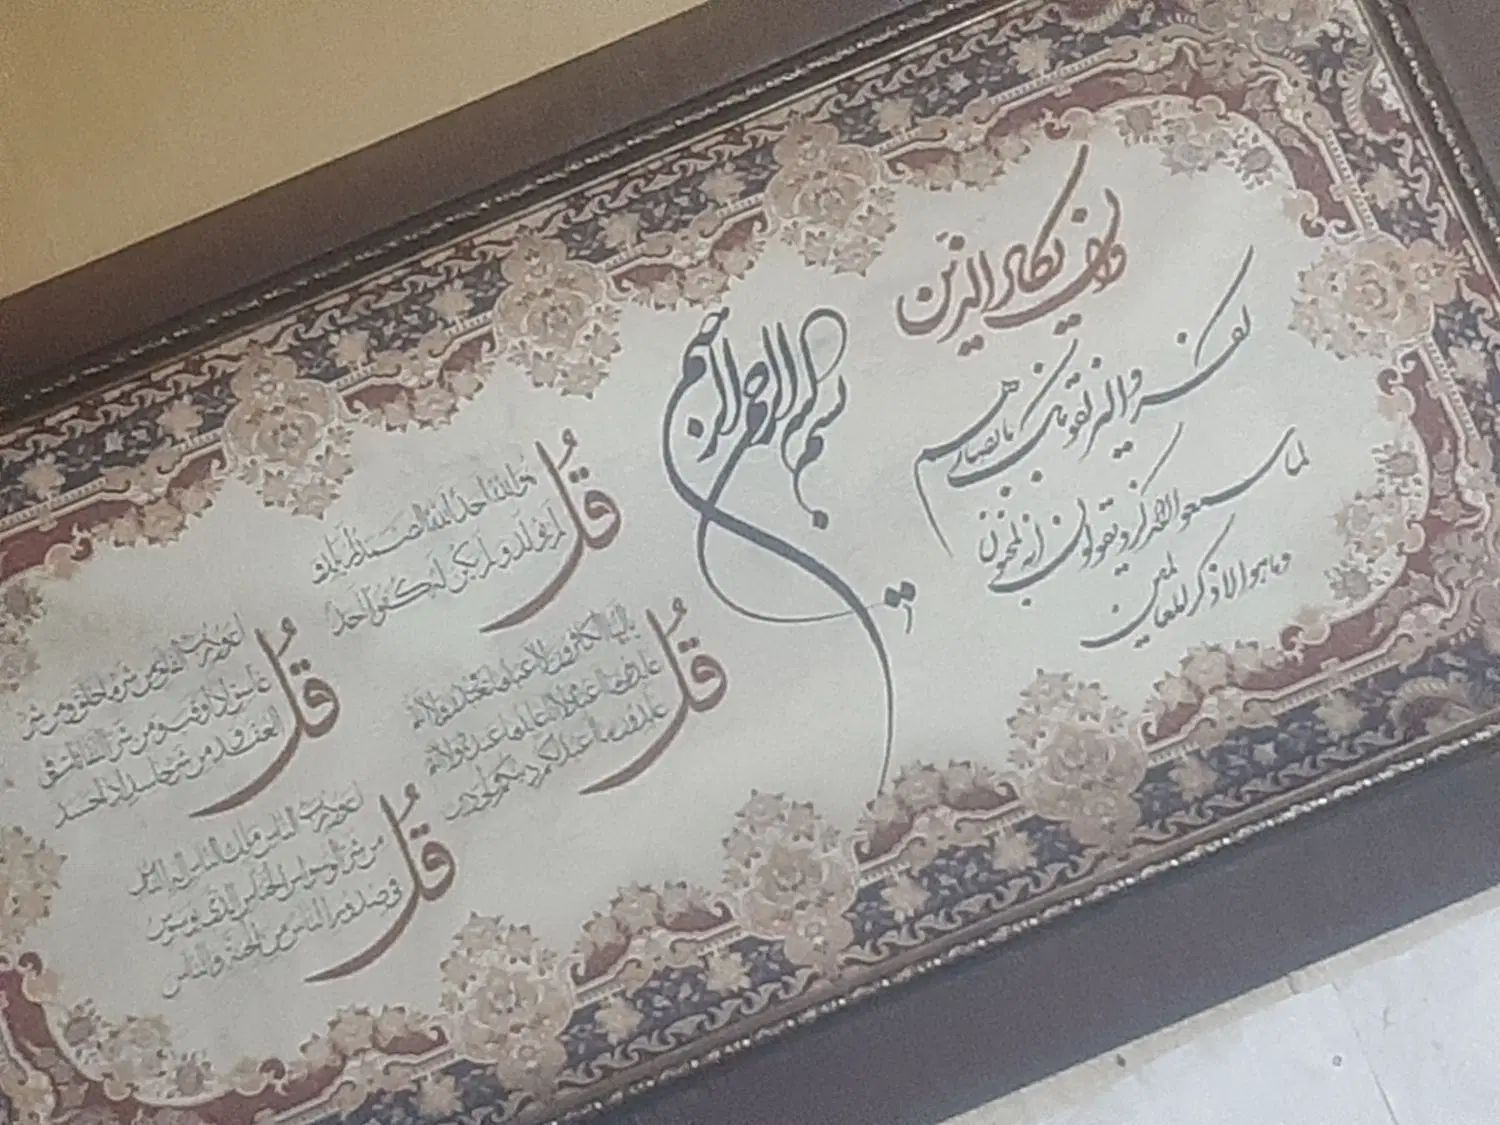 وان يكاد الذين
كفروا ليزلقونك بابصارهم
لما سمعوا الذكر ويقولون انه لمجنون
وما هو الا ذكر للعالمين
بسم الله الرحمن الرحيم
قل
هو الله احد الله الصمد لم يلد و
لم يولد و لم يكن له كفوا احد
قل
يا ايها الكافرون لا اعبد ما تعبدون ولا انتم
عابدون ما اعبد ولا انا عابد ما عبدتم ولا انتم
عابدون ما اعبد لكم دينكم ولي دين
قل
اعوذ برب الفلق من شر ما خلق ومن شر
غاسق اذا وقب ومن شر النفاثات في
العقد ومن شر حاسد اذا حسد
قل
اعوذ برب الناس ملك الناس اله الناس
من شر الوسواس الخناس الذي يوسوس
في صدور الناس من الجنة والناس